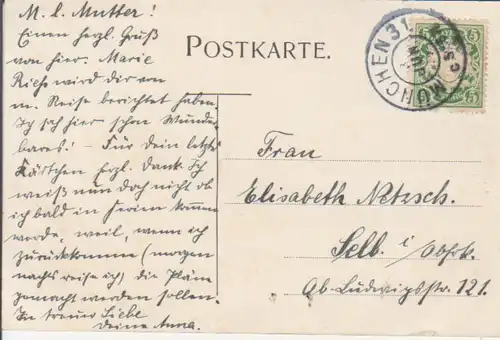 M. l. Mutter!
Einen herzl. Gruß
von hier. Marie
wird dir von
m. Reise berichtet haben.
Ich sah hier schon Wunder-
bares! - Für dein letztes
Kärtchen herzl. Dank. Ich
weiß nun doch nicht ob
ich bald in Ferien kommen
werde, weil, wenn ich
zurückkomme (morgen
nachts reise ich) die Pläne
gemacht werden sollen.
In treuer Liebe
deine Anna.
POSTKARTE.
MÜNCHEN 31
5 5
Frau
Elisabeth Netzsch.
Selb. i/Obfrk.
Ob. Ludwigsstr. 121.